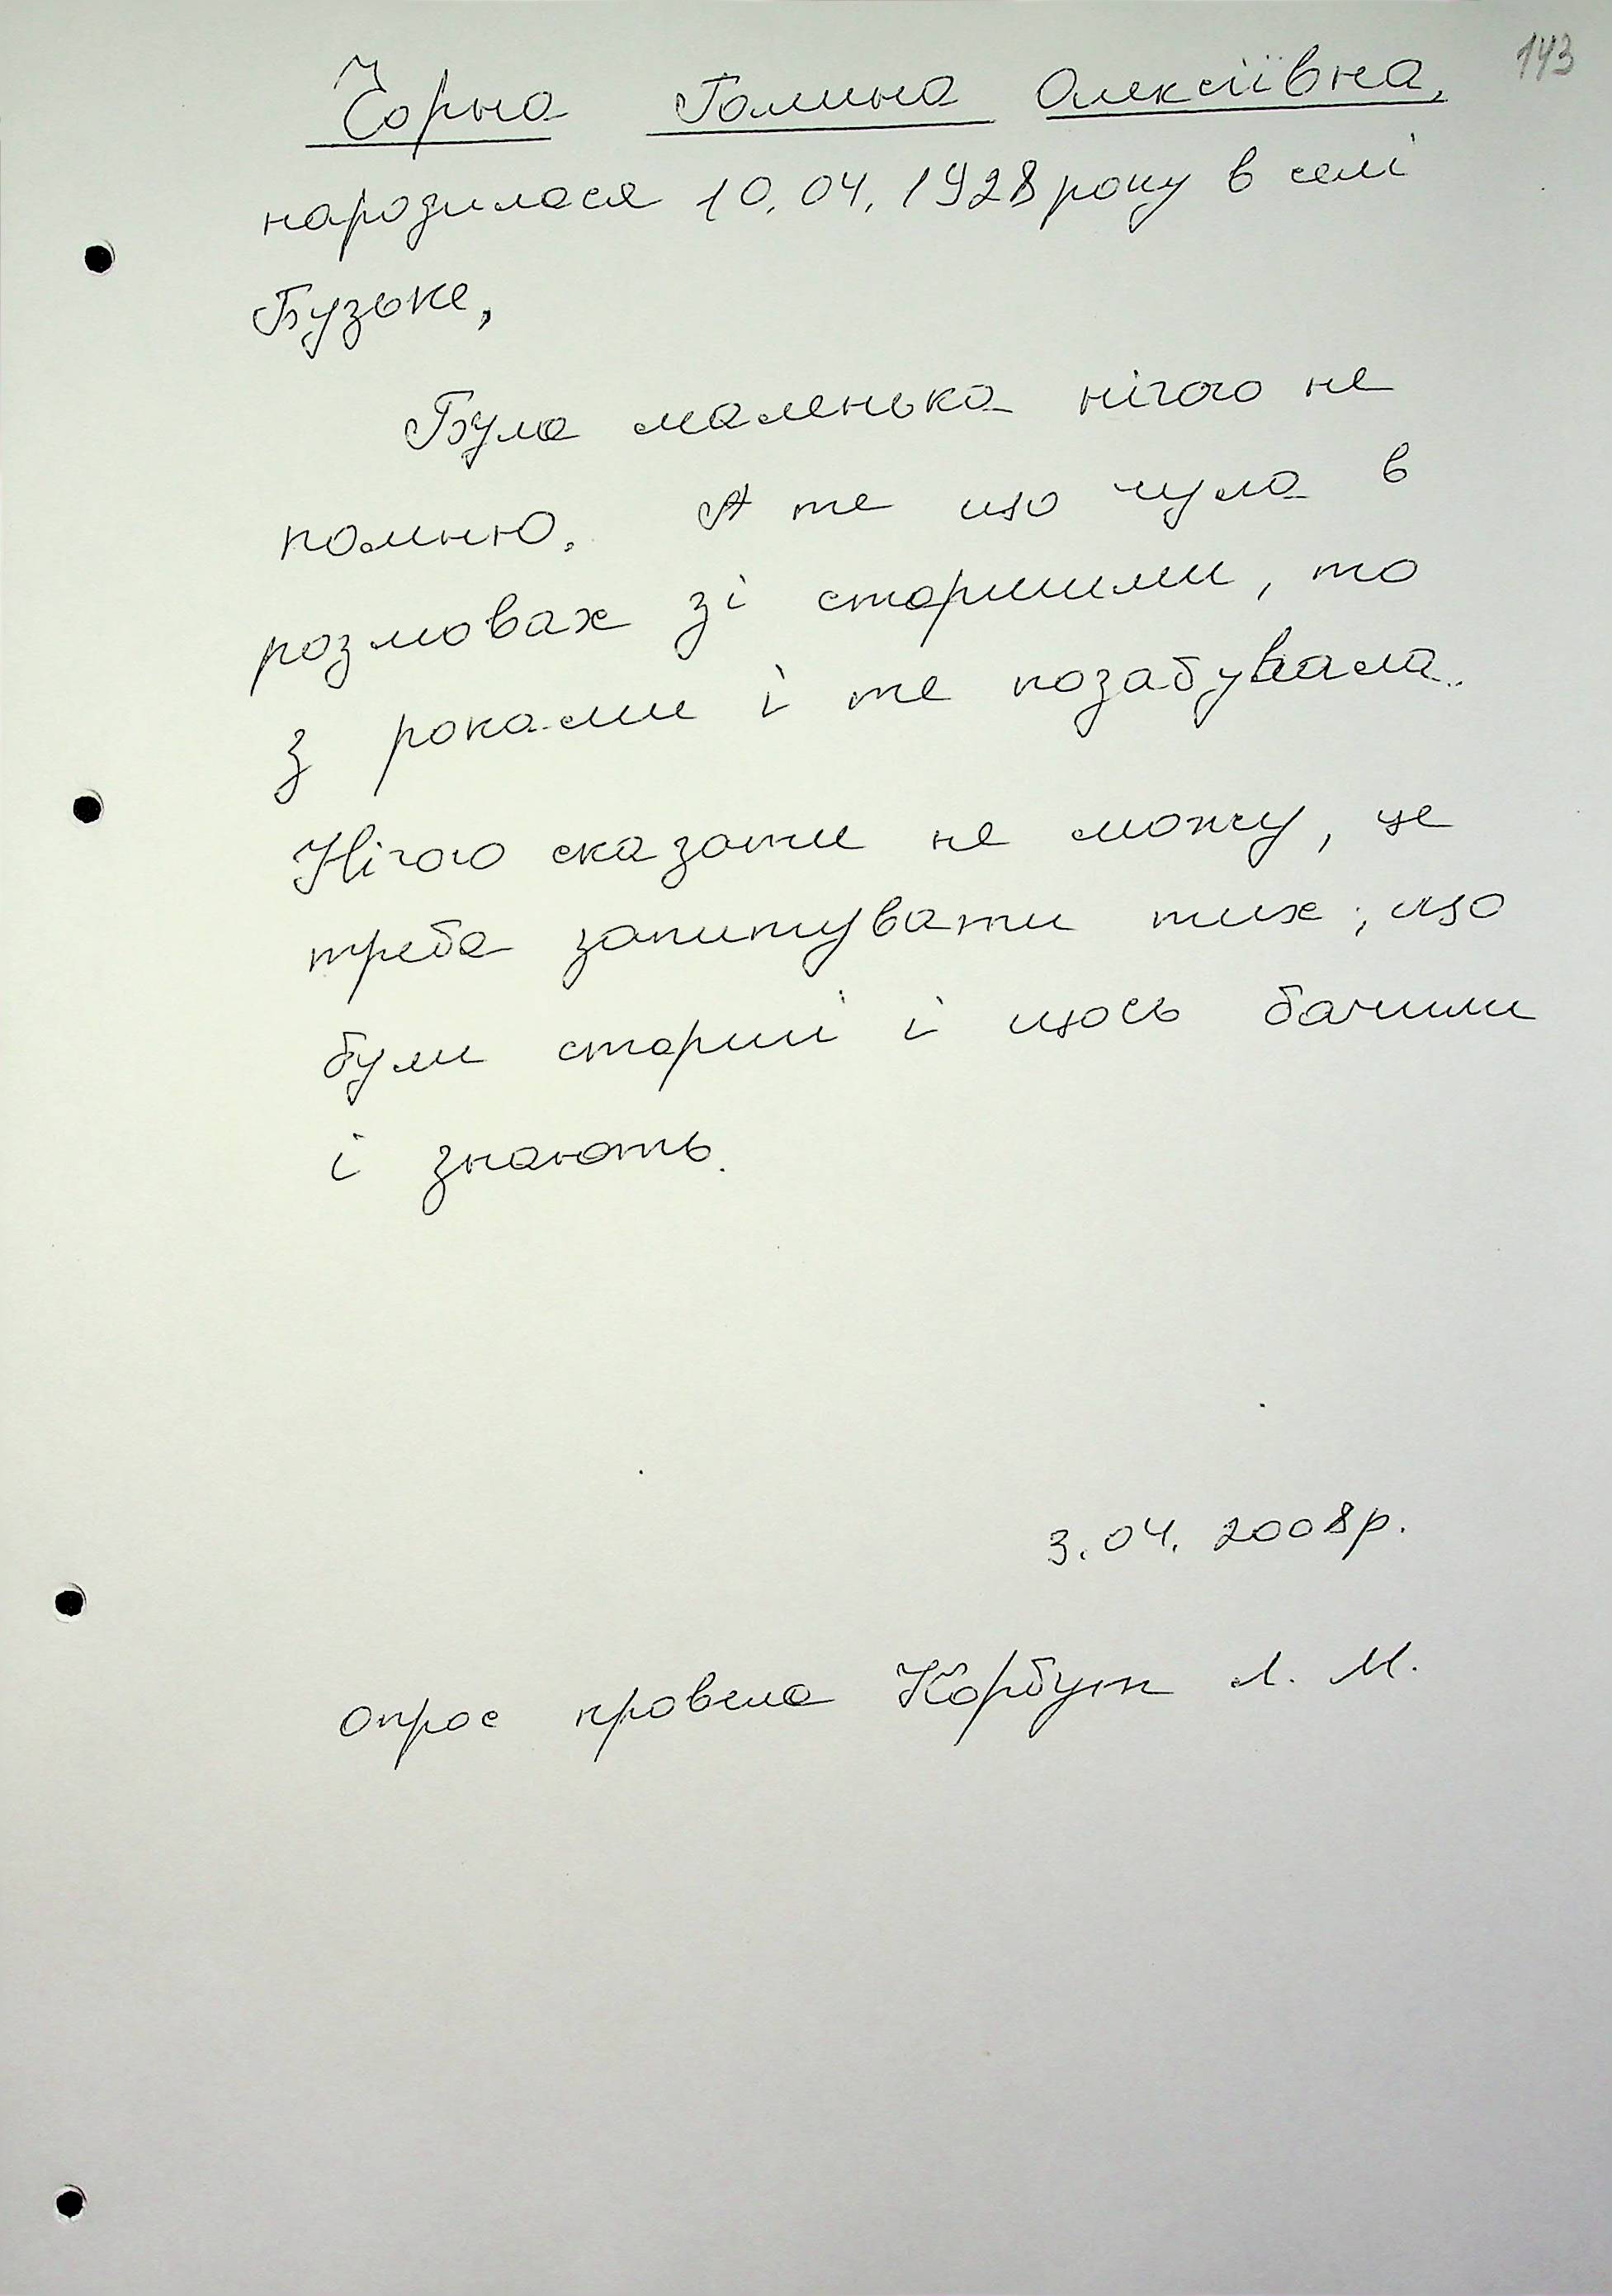 143
Чорна Галина Олексіївна,
народилася 10.04.1928 року в селі
Бузьке,
Була маленька нічого не
помню. А те що чула в
розмовах зі старшими, то
з роками і те позабувала.
Нічого сказати не можу, це
треба запитувати тих, що
були старші і щось бачили
і знають.
3.04.2008р.
опрос провела Корбут Л. М.